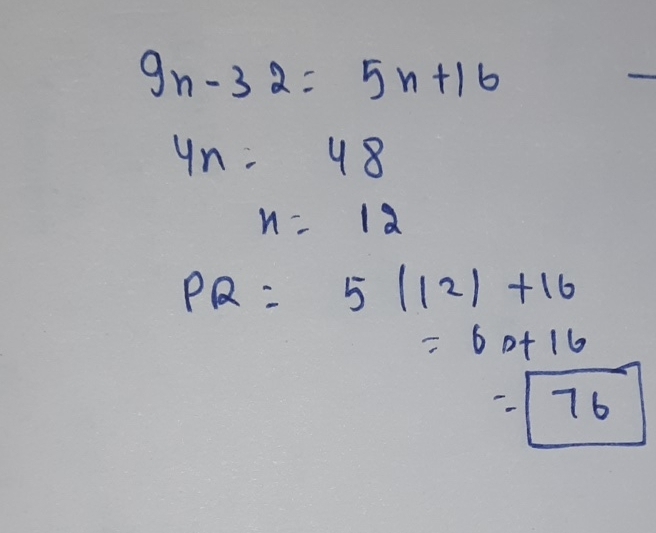 9n-32= 5n+16
4n= 48
n= 12
PR= 5(12)+16
= 60+16
= 76